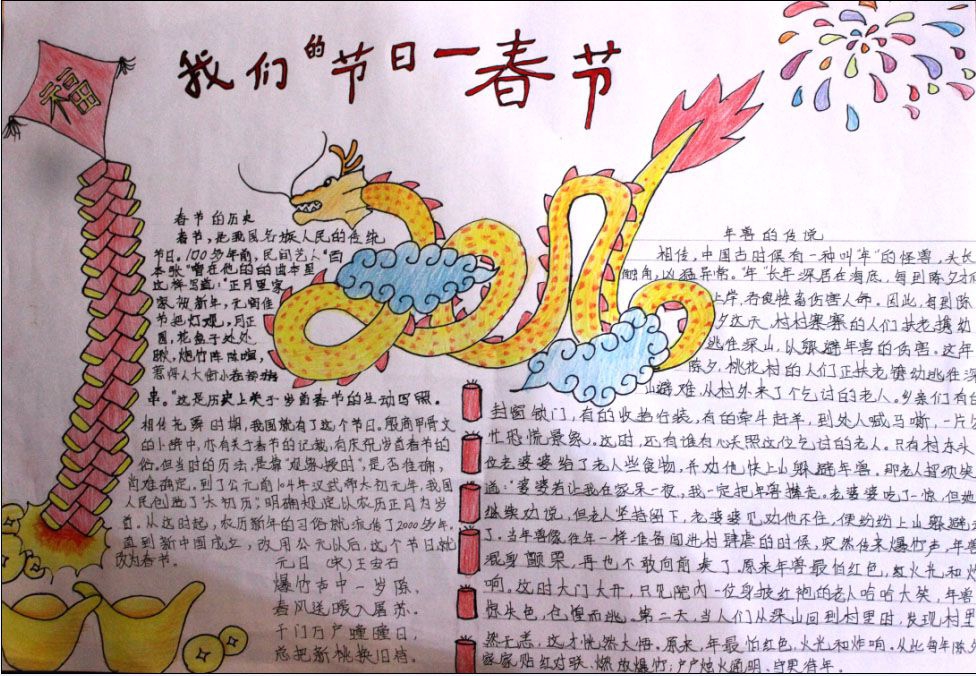 福
我们的节日—春节
春节的历史
春节，是我国各族人民的传统
节日。100多年前，民间艺人"四
本张"曾在他的的曲本里
这样写道："正月里家
家祝新年，元宵佳
节把灯观，月正
圆，花盒子处处
瞅，炮竹阵阵喧，
惹得人大街小巷
串。"这是历史上关于岁首春节的生动写照。
相传尧舜时期，我国就有了这个节日。殷商甲骨文
的卜辞中，亦有关于春节的记载，有庆祝岁首春节的
俗。但当时的历法，是靠"观象授时"，是否准确，
尚难确定。到了公元前104年汉武帝太初元年，我国
人民创造了"太初历"，明确规定以农历正月为岁
首。从这时起，农历新年的习俗就流传了2000多年。
直到新中国成立，改用公元以后，这个节日就
改为春节。
元日 （宋）王安石
爆竹声中一岁除，
春风送暖入屠苏。
千门万户曈曈日，
总把新桃换旧符。
年兽的传说
相传，中国古时候有一种叫"年"的怪兽，头长
触角，凶猛异常。"年"长年深居在海底，每到除夕才
上岸，吞食牲畜伤害人命。因此，每到除
夕这天，村村寨寨的人们扶老携幼
逃往深山，以躲避年兽的伤害。这年
除夕，桃花村的人们正扶老携幼逃往深
山避难，从村外来了个乞讨的老人。乡亲们有的
封窗锁门，有的收拾行装，有的牵牛赶羊，到处人喊马嘶，一片
忙恐慌景象。这时，还有谁有心关照这位乞讨的老人。只有村东头
位老婆婆给了老人些食物，并劝他快上山躲避年兽。那老人捋须笑
道："婆婆若让我在家呆一夜，我一定把年兽撵走。老婆婆吃了一惊，但她
继续劝说，但老人坚持留下，老婆婆见劝他不住，便纷纷上山躲避
了。当年兽像往年一样准备闯进村肆虐的时候，突然传来爆竹声，年兽
混身颤栗，再也不敢向前走了。原来年兽最怕红色，红火光和炸
响。这时大门大开，只见院内一位身披红袍的老人哈哈大笑，年兽
惊失色，仓惶而逃。第二天，当人们从深山回到村里时，发现村里
然无恙，这才恍然大悟。原来，年最怕红色，火光和炸响。从此每年除夕
家家贴红对联、燃放爆竹，户户烛火通明、守更待年。